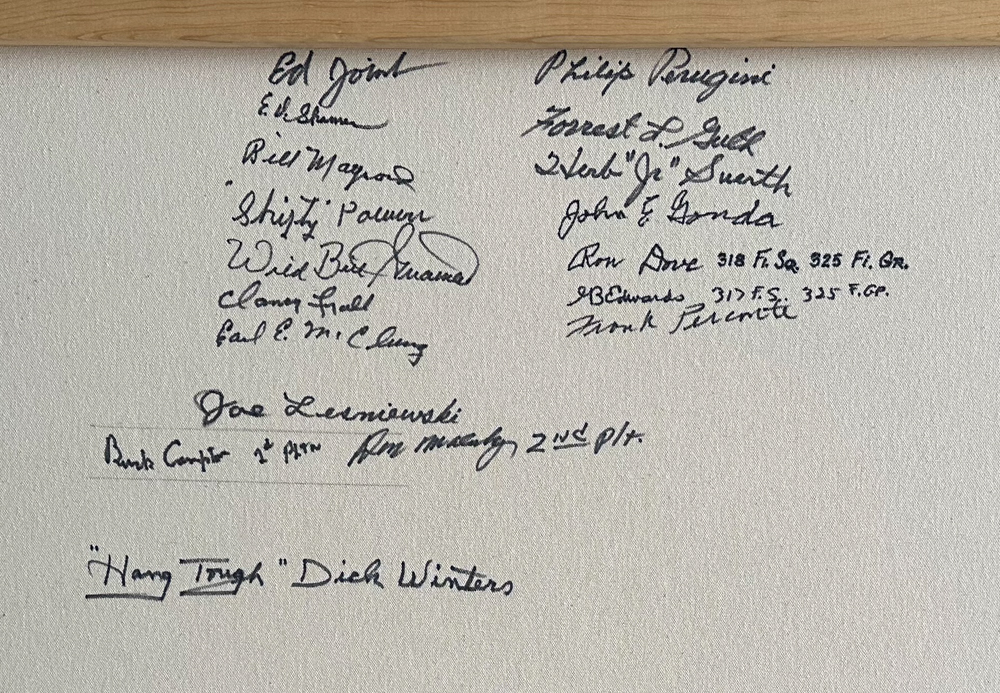 Ed Joint
E. D. Shames
Bill Maynard
"Shifty" Powers
Wild Bill Guarnere
Clancy Lyall
Earl E. McClung
Philip Perugini
Forrest L. Guth
Herb "Jr" Suerth
John E Gonda
Ron Dove 318 Ft. Sq. 325 Ft. Gr.
Edwards 317 F.S. 325 F. GP.
Frank Perconte
Joe Lesniewski
Buck Compton 2d PLTN Don Malarkey 2ND Plt.
"Hang Tough" Dick Winters